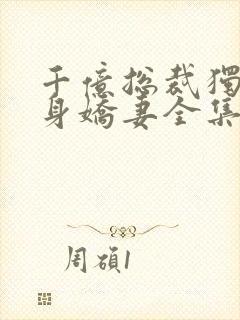 千億總裁獨
身嬌妻全集
周碩1